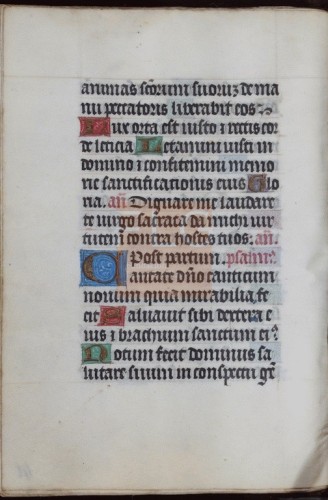 animas sc̃orum suoruz de ma
nu peccatoris liberabit eos
Lux orta est iusto ⁊ rectis cor
de leticia Letamini iusti in
domino ⁊ confitemini memo
rie sanctificationis eius Glo
ria. añ Dignare me laudare
te virgo sacrata da michi vir
tutem contra hostes tuos. añ.
Post partum. psalm⁹
Cantate dño canticum
nouum quia mirabilia fe
cit Saluauit sibi dextera e
ius ⁊ brachium sanctum ei⁹
Notum fecit dominus sa
lutare suum in conspectu